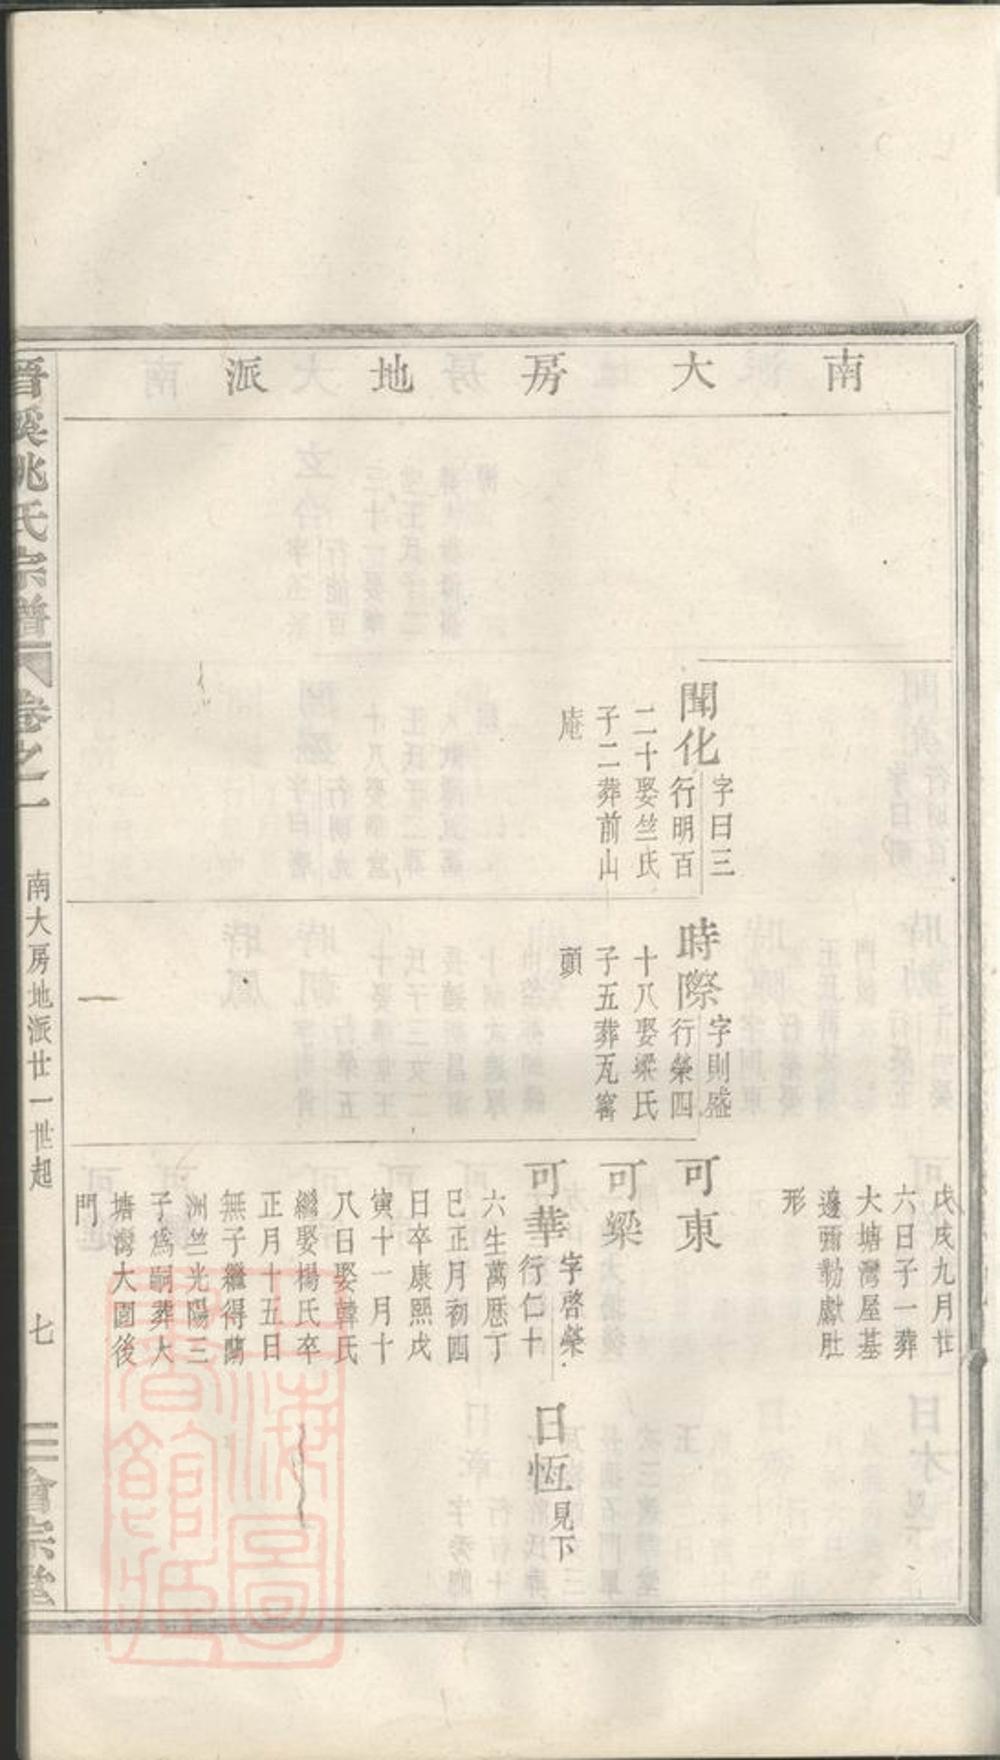 南大房地派
聞化
字曰三
行明百
二十娶竺氏
子二葬前山
庵
時際
字則盛
行榮四
十八娶梁氏
子五葬瓦窰
頭
戊戌九月廿
六日子一葬
大塘灣屋基
邊頭勒獻肚
形
可東
可梁
可華
字啓榮
行仁十
六生萬厯丁
巳正月初四
日卒康熙戊
寅十一月十
八日娶韓氏
繼娶楊氏卒
正月十五日
無子繼得蘭
洲竺光陽三
子爲嗣葬大
塘灣大園後
門
日恆
見下
晋溪姚氏宗譜
卷之一
南大房地派廿一世起
七
會宗堂